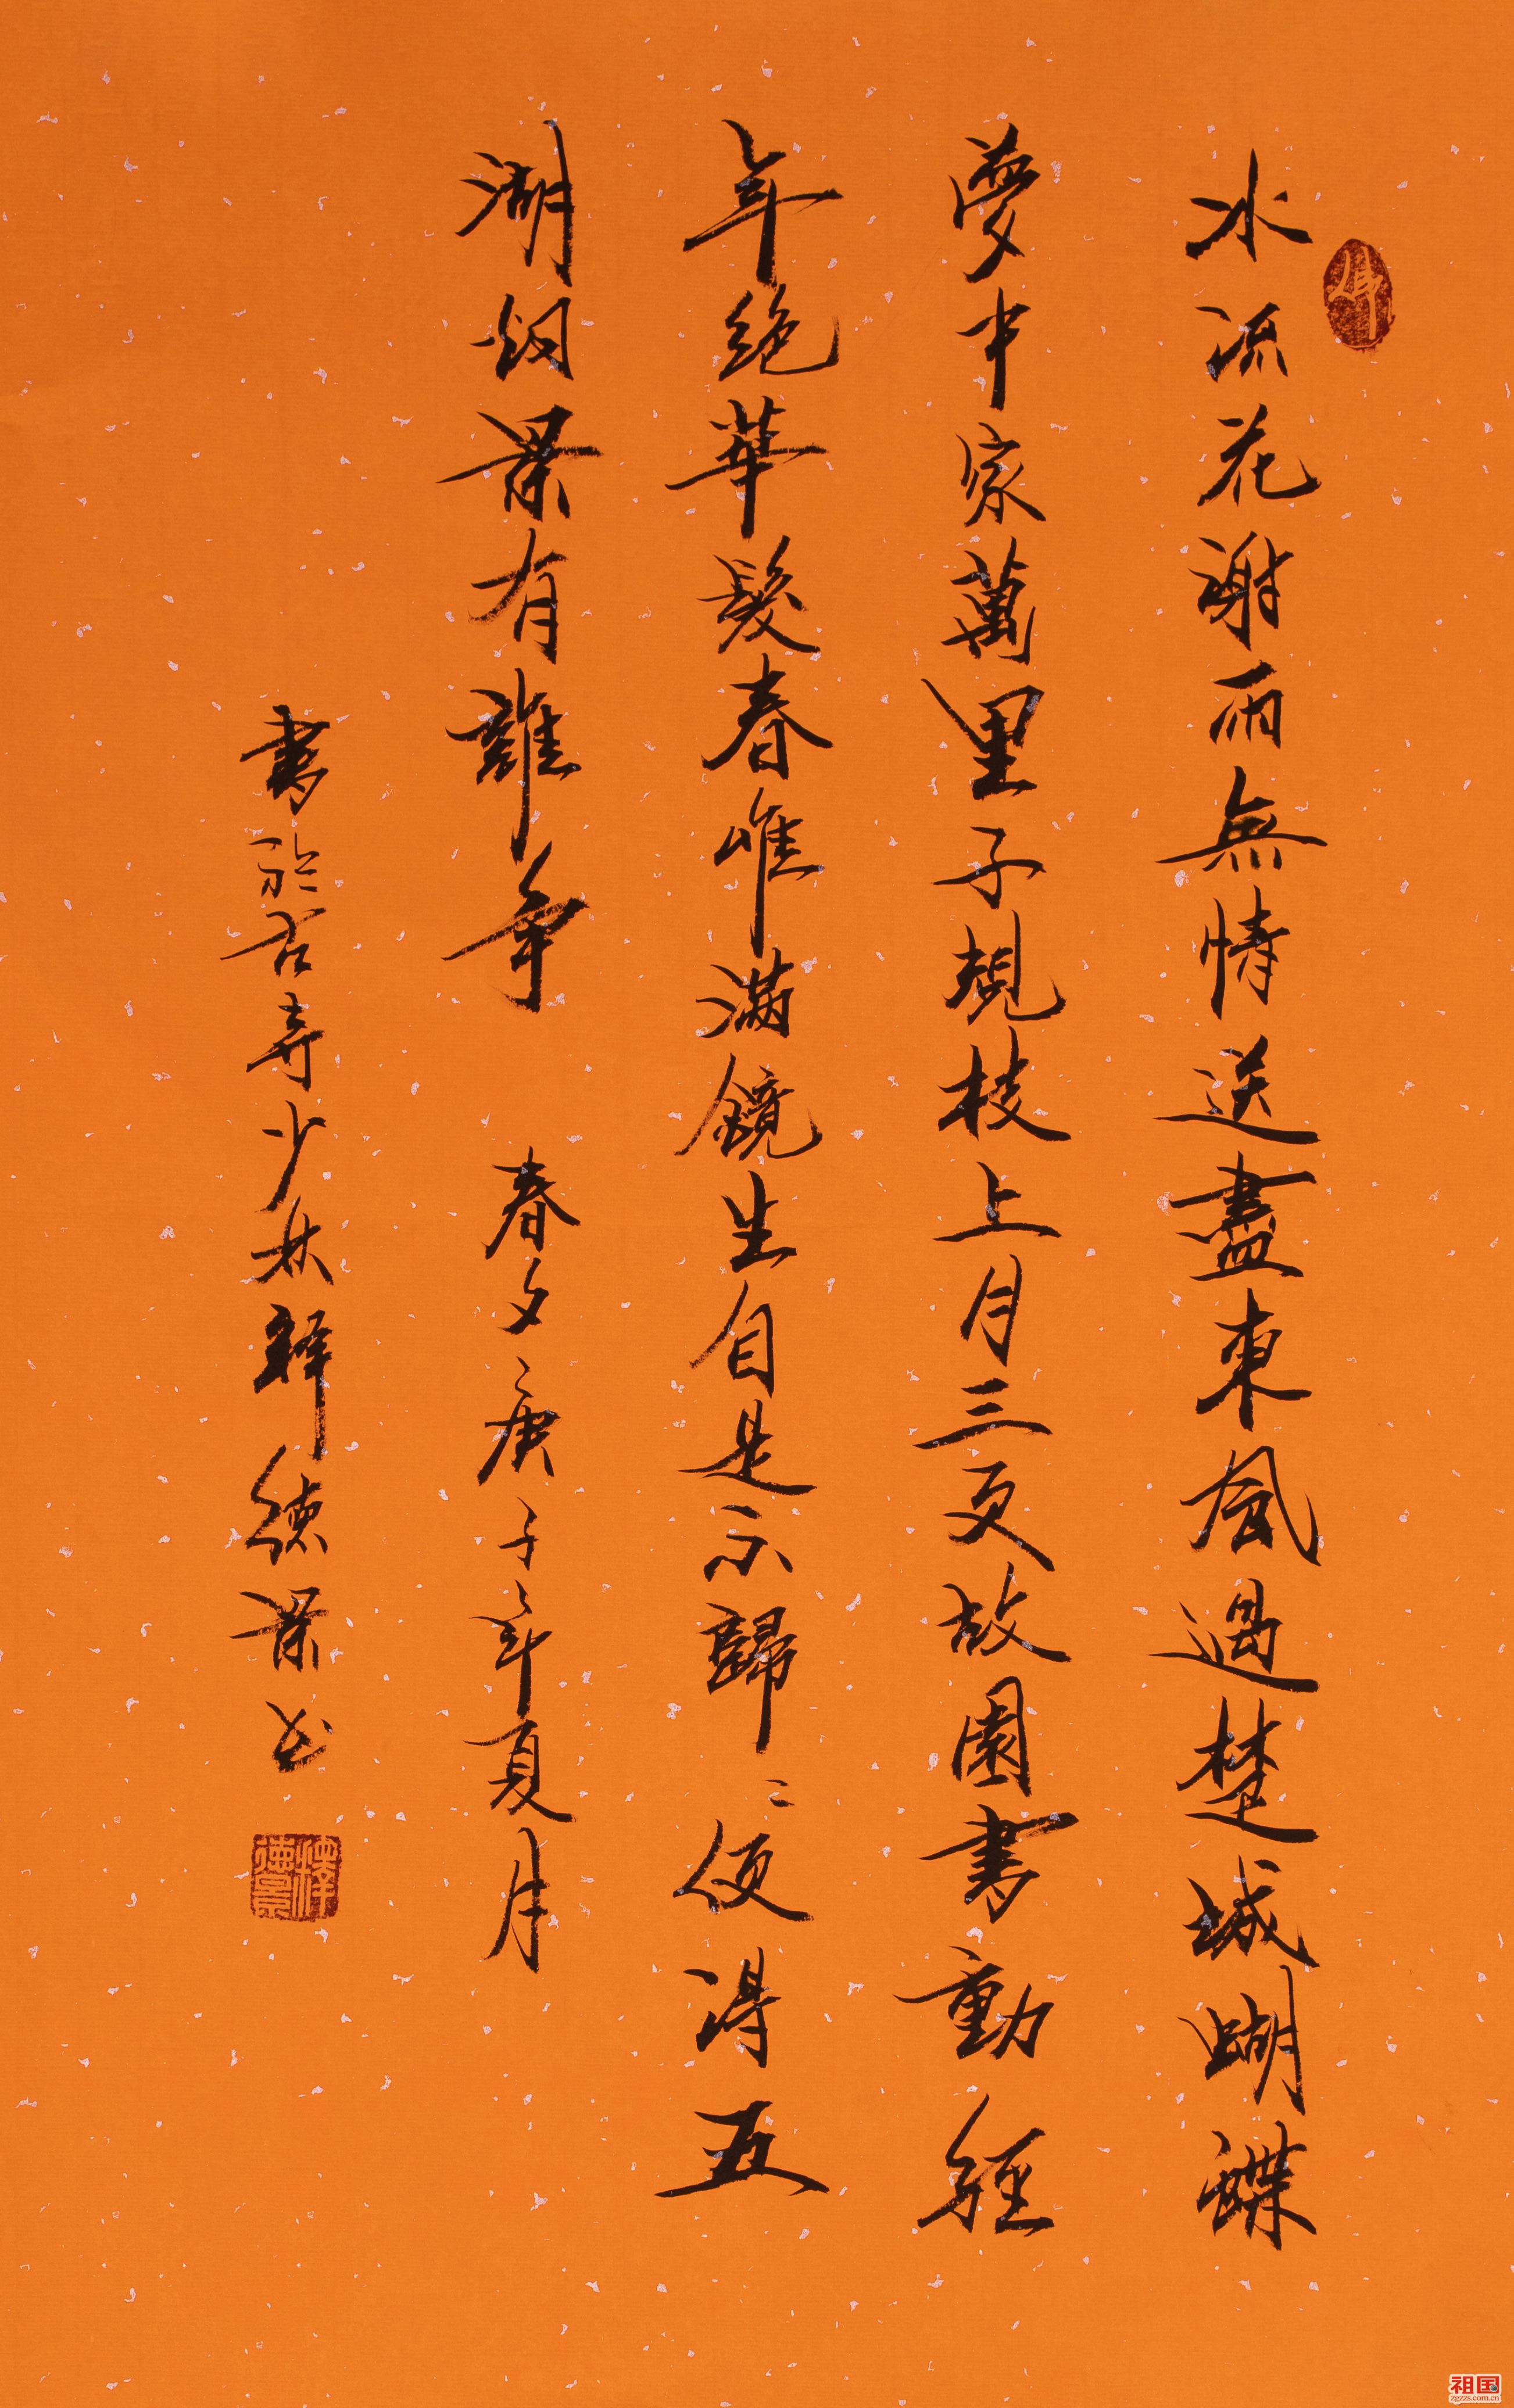 水流花謝兩無情送盡東風過楚城蝴蝶
夢中家萬里子規枝上月三更故園書動經
年絕華髮春唯滿鏡生自是不歸〻便得五
湖烟景有誰争 春夕〻庚子年夏月
書於古寺少林釋德景书
釋德景
祖国
zgzzs.com.cn